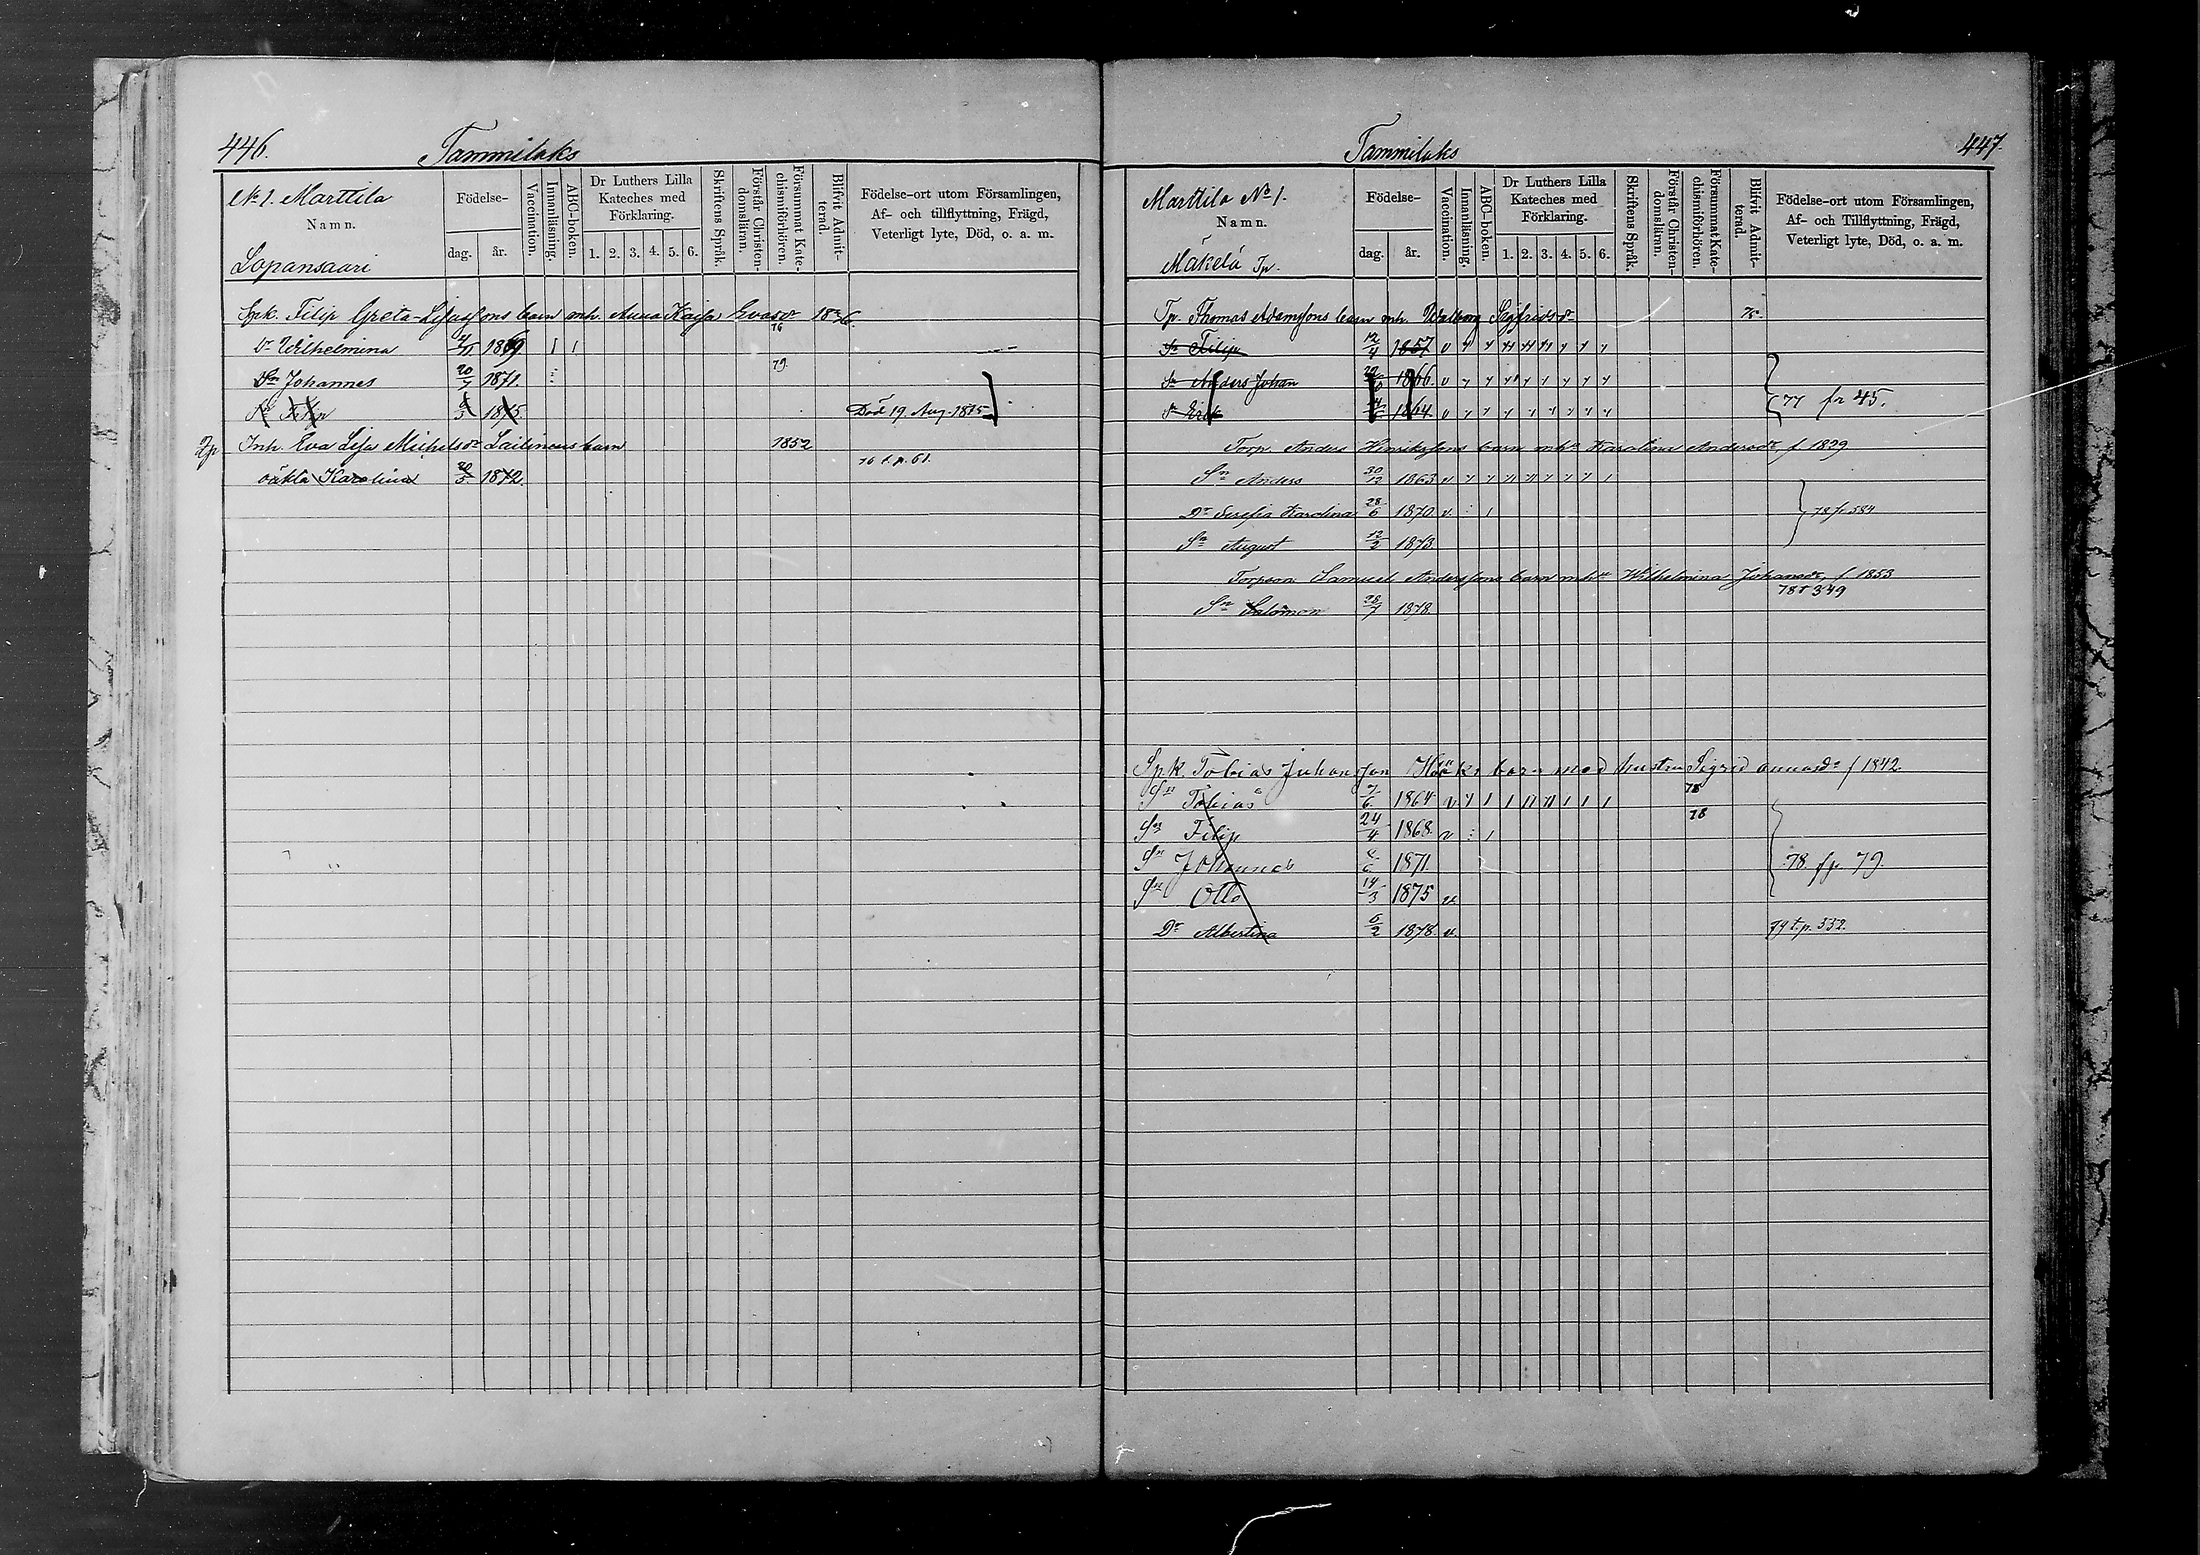 446. Tammilaks
No 1. Marttila
Namn.
Lopansaari
Födelse-
dag. år.
Vaccination.
Innanläsning.
ABC-boken.
Dr Luthers Lilla Kateches med Förklaring.
1. 2. 3. 4. 5. 6.
Skriftens Språk.
Förstår Christendomsläran.
Försummat Katechismiförhören.
Blifvit Admitterad.
Födelse-ort utom Församlingen,
Af- och tillflyttning, Frägd,
Veterligt lyte, Död, o. a. m.
Spk. Filip Greta-Lisasson barn mh. Anna Kaisa Evasdr
76
Dr Wilhelmina 1869 1 1
79.
Sn Johannes 20/7 1871.
Sn 1875. Död 19 Aug. 1875
Inh. Eva Lisa Michelsdr Lailinens barn 1852
76 t.p. 61.
oäkta Karolina 20/3 1872.
Tammilaks 447.
Marttila No 1.
Namn.
Mäkelä Tp.
Födelse-
dag. år.
Vaccination.
Innanläsning.
ABC-boken.
Dr Luthers Lilla Kateches med Förklaring.
1. 2. 3. 4. 5. 6.
Skriftens Språk.
Förstår Christendomsläran.
Försummat Katechismiförhören.
Blifvit Admitterad.
Födelse-ort utom Församlingen,
Af- och Tillflyttning, Frägd,
Veterligt lyte, Död, o. a. m.
Tp. Thomas Adamssons barn mh. Walborg Sigfridsdr
Sn Filip 12/4 1857 v
Sn Anders Johan 1866. v
Sn Erik 1864. v
77 fr 45.
Torp. Anders Henrikssons barn mh Karolina Andersdr, f 1829
Sn Anders 30/12 1863 v
Dr Serefia Karolina 28/6 1870 v
78 fr 584
Sn August 12/2 1873.
Torpson Samuel Anderssons barn mh Wilhelmina Johansdr, f 1853
78 t 349
Sn Salomon 28/7 1878.
Spk. Tobias Johansson Höök's barn med hustru Sigrid Annasdr f 1842
78
Sn Tobias 7/6 1864 v
78
Sn Filip 24/4 1868. v
Sn Johannes 1871.
78 fr. 79.
Sn Otto 14/3 1875 v
Dr Albertina 6/2 1878. v 79 t.p. 332.